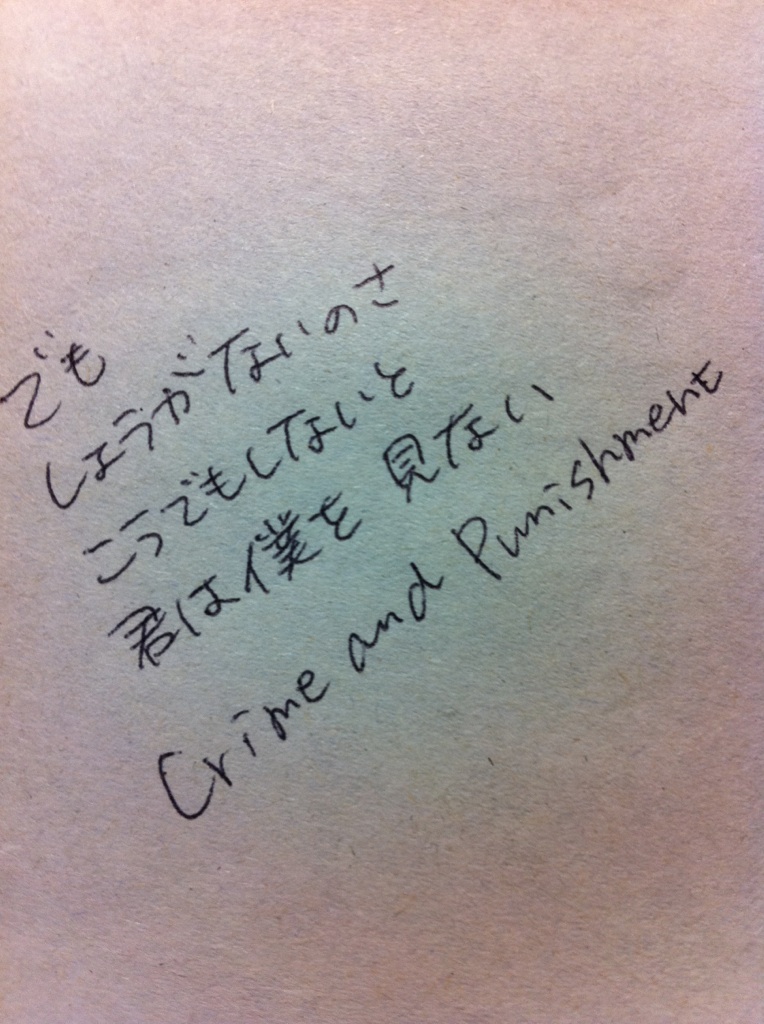 でも
しょうがないのさ
こうでもしないと
君は僕を見ない
Crime and Punishment